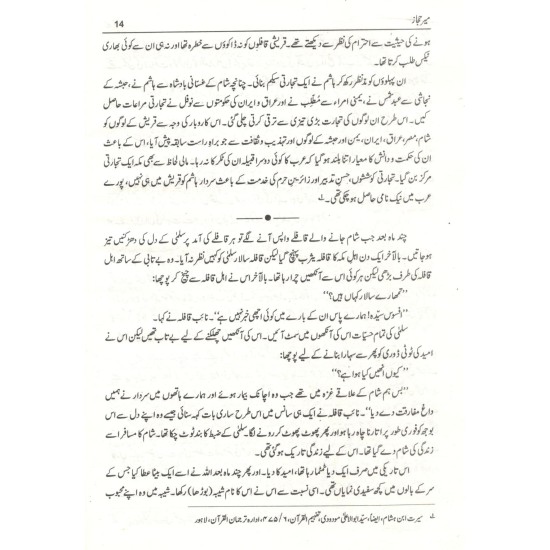 میرِ حجاز
14
ہونے کی حیثیت سے احترام کی نظر سے دیکھتے تھے۔ قریشی قافلوں کو نہ ڈاکوؤں سے خطرہ تھا اور نہ ہی ان سے کوئی بھاری
ٹیکس طلب کرتا تھا۔
ان پہلوؤں کو مدّنظر رکھ کر ہاشم نے ایک تجارتی سکیم بنائی۔ چنانچہ شام کے غسانی بادشاہ سے ہاشم نے، حبشہ کے
نجاشی سے عبد شمس نے، یمنی امراء سے مُطَّلِب نے اور عراق و ایران کی حکومتوں سے نوفل نے تجارتی مراعات حاصل
کیں۔ اس طرح ان لوگوں کی تجارت بڑی تیزی سے ترقی کرتی چلی گئی۔ اس کاروبار کی وجہ سے قریش کے لوگوں کو
شام، مصر، عراق، ایران، یمن اور حبشہ کے لوگوں اور تہذیب و ثقافت سے جو براہِ راست سابقہ پیش آیا، اس کے باعث
ان کی حکمت و دانش کا معیار اتنا بلند ہو گیا کہ عرب کا کوئی دوسرا قبیلہ ان کی ٹکر کا نہ رہا۔ مالی لحاظ سے بھی مکہ ایک تجارتی
مرکز بن گیا۔ تجارتی کوششوں، حسنِ تدبیر اور زائرینِ حرم کی خدمت کے باعث سردار ہاشم کو قریش میں ہی نہیں، پورے
عرب میں نیک نامی حاصل ہو چکی تھی۔
چند ماہ بعد جب شام جانے والے قافلے واپس آنے لگے تو ہر قافلے کی آمد پر سلمٰی کے دل کی دھڑکنیں تیز
ہو جاتیں۔ بالآخر ایک دن اہلِ مکہ کا قافلہ یثرب پہنچ گیا لیکن قافلہ سالار سلمٰی کو کہیں نظر نہ آیا۔ وہ بے تابی کے ساتھ اہلِ
قافلہ کی طرف بڑھی لیکن ہر کوئی اس سے آنکھیں چرا رہا تھا۔ بالآخر اس نے اہل قافلہ سے چیخ کر پوچھا:
”تمھارے سالار کہاں ہیں؟“
”افسوس سیّدہ! ہمارے پاس ان کے بارے میں کوئی اچھی خبر نہیں ہے“۔ نائب قافلہ نے کہا۔
سلمٰی کی تمام حسیّات اس کی آنکھوں میں سمٹ آئیں۔ اس کی آنکھیں چھلکنے کے لیے بے تاب تھیں لیکن اس نے
امید کی ٹوٹی ڈوری کو پھر سے سہارا بنانے کے لیے پوچھا:
”کیوں انھیں کیا ہوا ہے؟“
”بس ہم شام کے علاقے غزہ میں تھے جب وہ اچانک بیمار ہوئے اور ہمارے ہاتھوں میں سردار نے ہمیں
داغِ مفارقت دے دیا“۔ نائب قافلہ نے ایک ہی سانس میں اس طرح ساری بات کہہ سنائی جیسے وہ اپنے دل سے اس
بوجھ کو فوری طور پر اتارنا چاہ رہا ہو اور پھر پھوٹ پھوٹ کر رونے لگا۔ سلمٰی کے ضبط کا بند ٹوٹ چکا تھا۔ شام کا مسافر اسے
زندگی کی شام دے گیا تھا۔ اس کے لیے زندگی تاریک ہو گئی تھی۔
اس تاریکی میں صرف ایک دیا ٹمٹما رہا تھا، امید کا دیا۔ اور پھر چند ماہ بعد اللہ نے اسے ایک بیٹا عطا کیا جس کے
سر کے بالوں میں کچھ سفیدی نمایاں تھی۔ اسی نسبت سے اس نے اس کا نام شیبہ (بوڑھا) رکھا۔ شیبہ میں وہ اپنے محبوب
سیرت ابن ہشام، ایضاً، سیّد ابوالاعلیٰ مودودی، تفہیم القرآن، ۶/ ۴۷۵، ادارہ ترجمان القرآن، لاہور